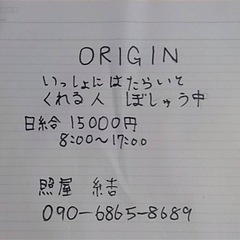 ORIGIN
いっしょにはたらいて
くれる人 ぼしゅう中
日給 15000円
8:00～17:00
照屋 結
090-6865-8689